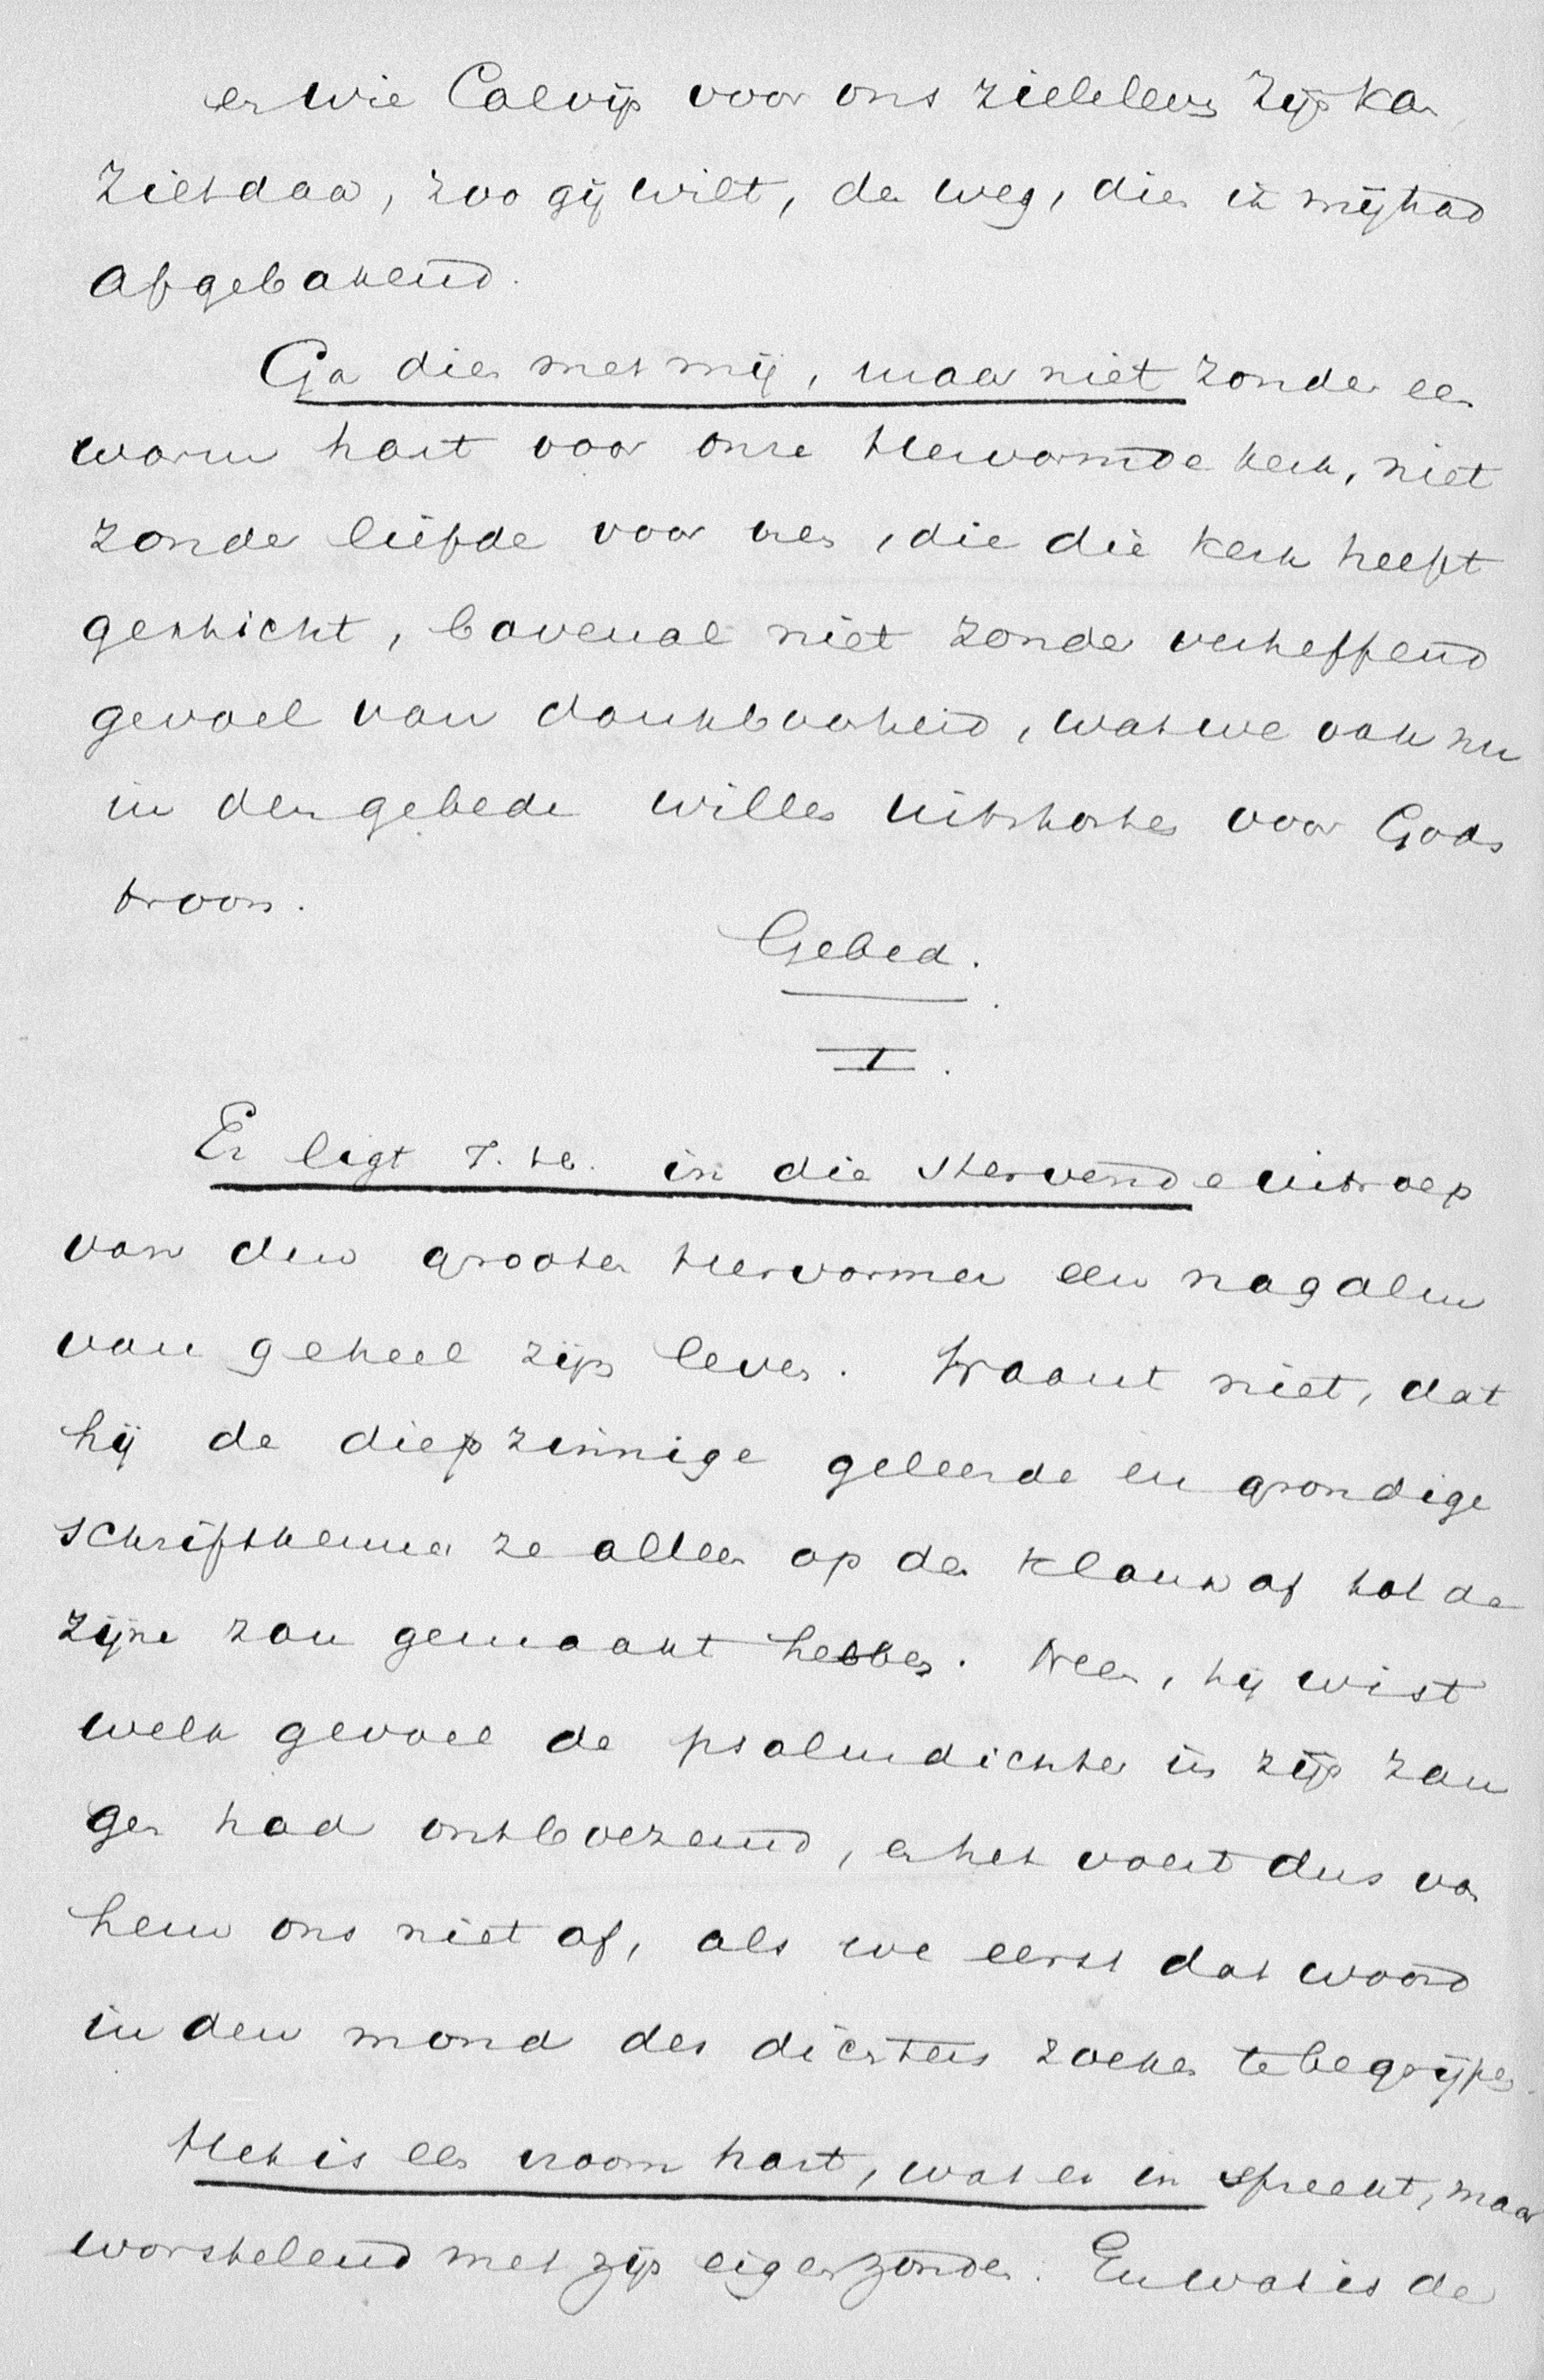 en wie Calvijn voor ons zieleleven zijn kan
Ziet daar, zoo gij wilt, den weg, dien ik mij had
afgebakend.
Ga dien met mij, maar niet zonder een
warm hart voor onze Hervormde kerk, niet
zonder liefde voor hen, die die kerk heeft
gesticht, bovenal niet zonder verheffend
gevoel van dankbaarheid, wat we ook nu
in den gebede willen uitstorten voor Gods
troon.
Gebed.
I.
Er ligt T. H. in die stervende uitroep
van den grooten Hervormer een nagalm
van geheel zijn leven. Waant niet, dat
hij de diepzinnige geleerde en grondige
schriftkenner ze alleen op den klank af tot de
zijne zou gemaakt hebben. Neen, hij wist
welk gevoel de psalmdichter in zijn zan
gen had ontboezemd, en het voert dus van
hem ons niet af, als we eerst dat woord
in den mond des dichters zoeken te begrijpen.
Het is een vroom hart, wat er in spreekt, maar
worstelend met zijn eigen zonden. En wat is de